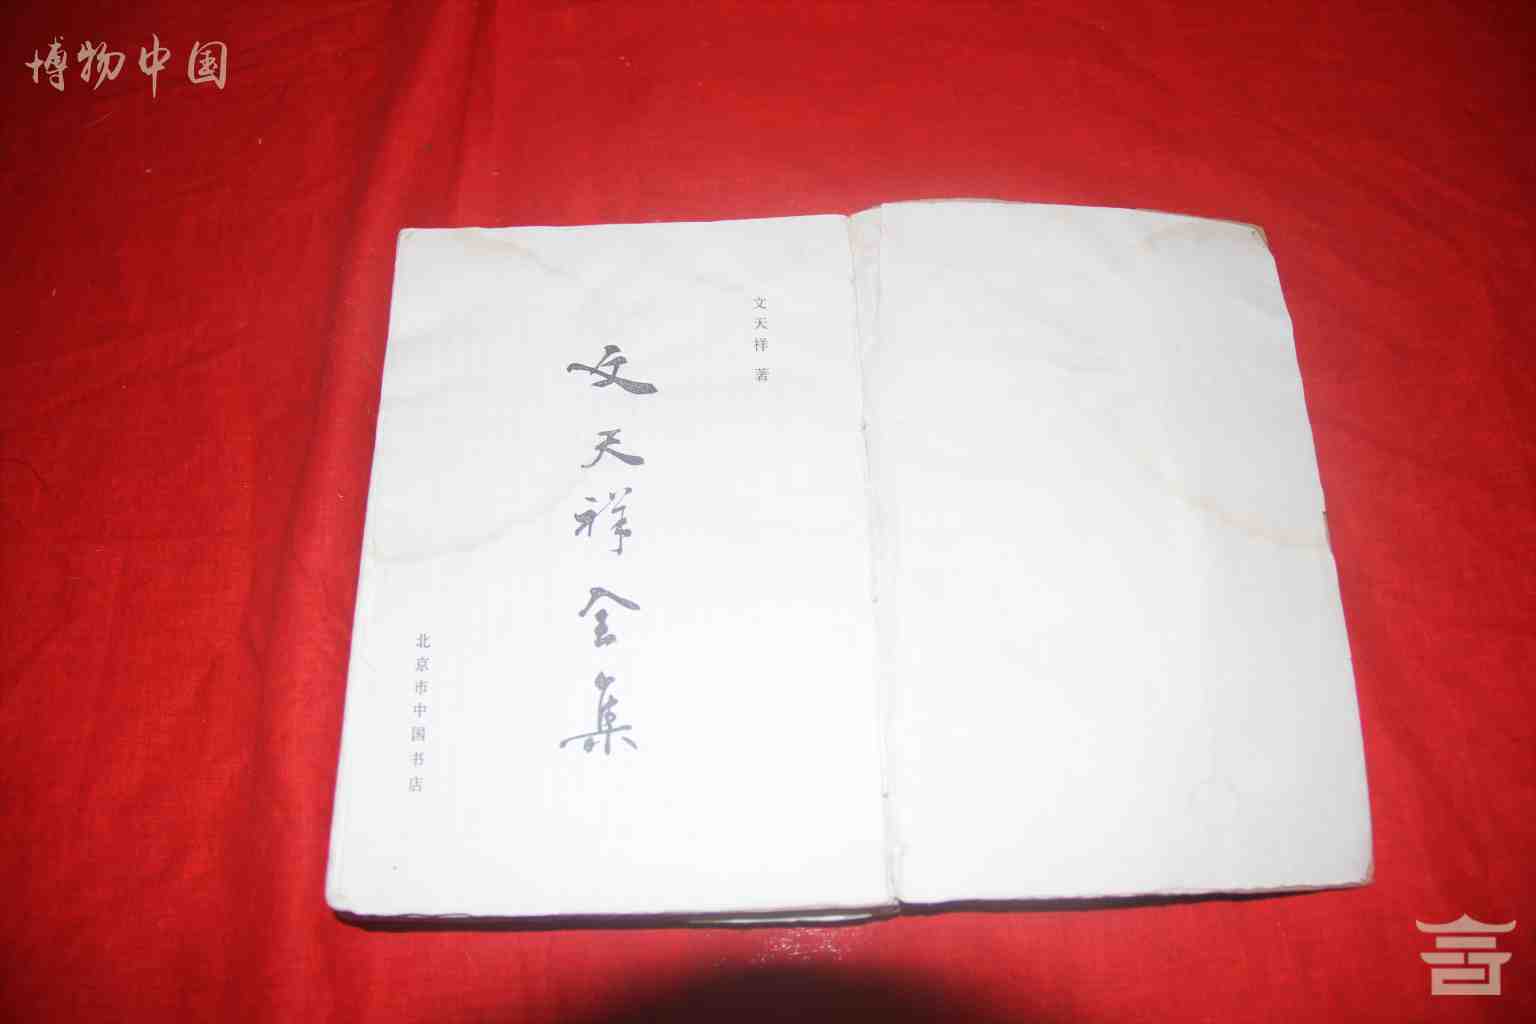 博物中国
文天祥 著
文天祥全集
北京市中国书店